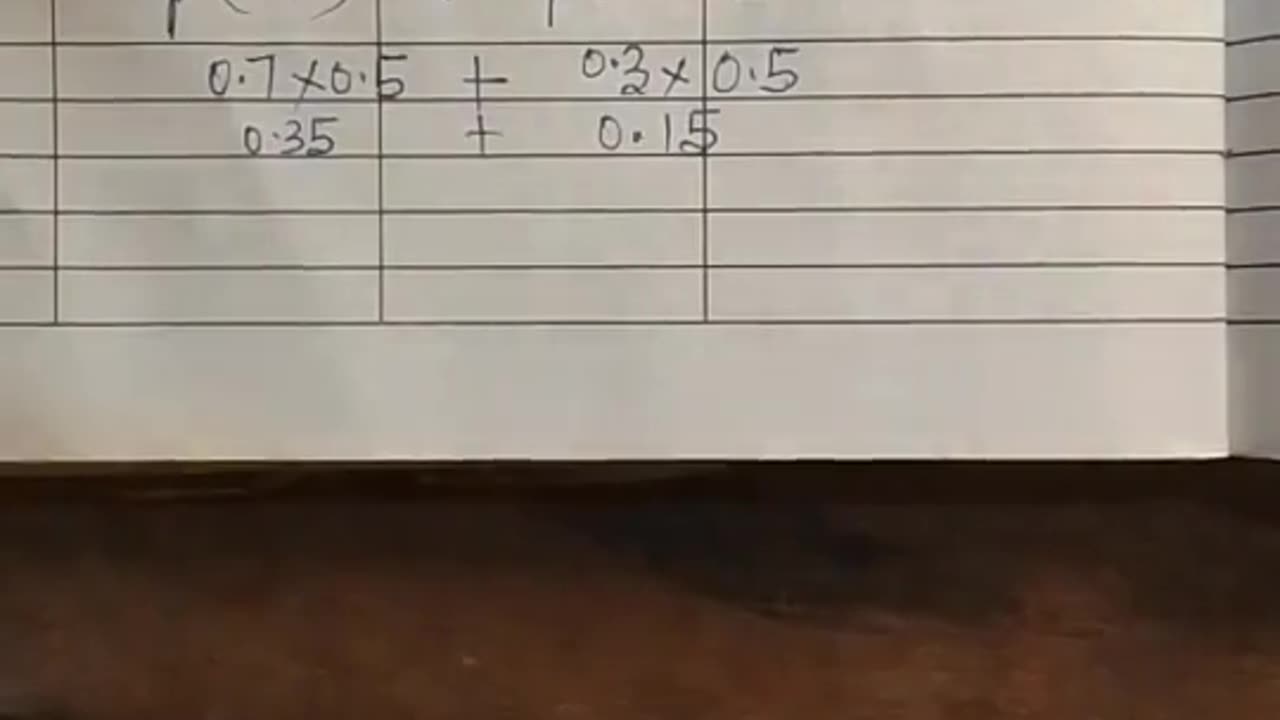 0.7 x 0.5 + 0.3 x 0.5
0.35 + 0.15